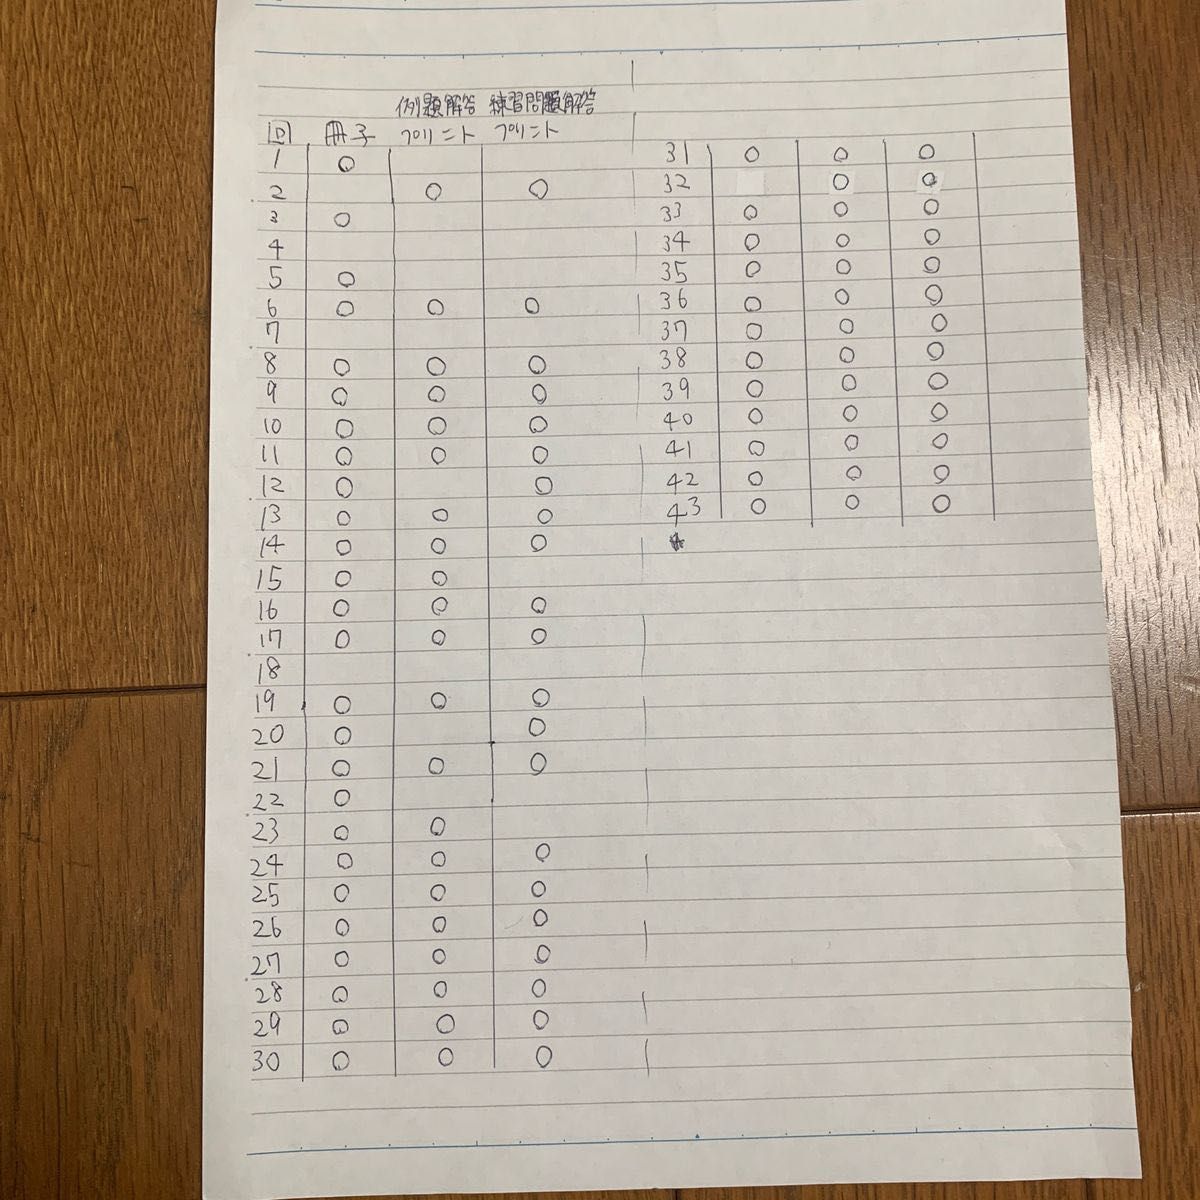 例題解答 練習問題解答
回 冊子 プリント プリント
1 ○
2 ○ ○
3 ○
4
5 ○
6 ○ ○ ○
7
8 ○ ○ ○
9 ○ ○ ○
10 ○ ○ ○
11 ○ ○ ○
12 ○ ○
13 ○ ○ ○
14 ○ ○ ○
15 ○ ○
16 ○ ○ ○
17 ○ ○ ○
18
19 ○ ○ ○
20 ○ ○
21 ○ ○ ○
22 ○
23 ○ ○
24 ○ ○ ○
25 ○ ○ ○
26 ○ ○ ○
27 ○ ○ ○
28 ○ ○ ○
29 ○ ○ ○
30 ○ ○ ○
31 ○ ○ ○
32 ○ ○
33 ○ ○ ○
34 ○ ○ ○
35 ○ ○ ○
36 ○ ○ ○
37 ○ ○ ○
38 ○ ○ ○
39 ○ ○ ○
40 ○ ○ ○
41 ○ ○ ○
42 ○ ○ ○
43 ○ ○ ○